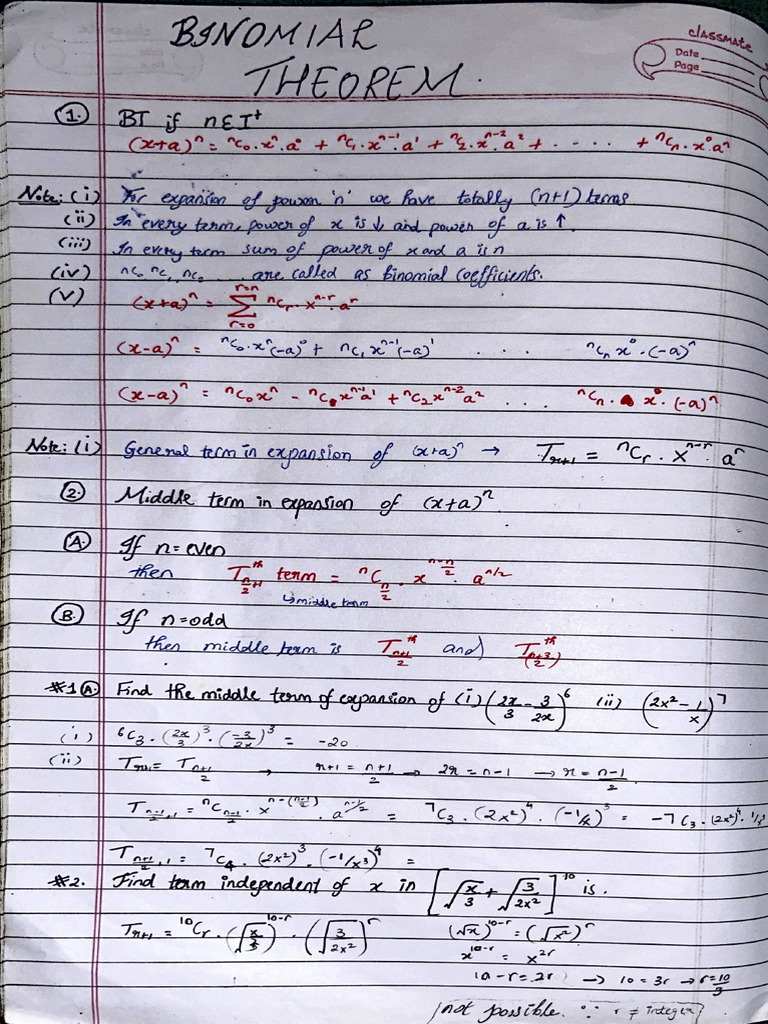 BINOMIAL
THEOREM.
classmate
Date
Page
① BT if n ε I⁺
(x+a)ⁿ = ⁿC₀·xⁿ·a⁰ + ⁿC₁·xⁿ⁻¹·a¹ + ⁿC₂·xⁿ⁻²·a² + - . . . . + ⁿCₙ·x⁰·aⁿ
Note: (i) For expansion of power 'n' we have totally (n+1) terms
(ii) In every term, power of x is ↓ and power of a is ↑.
(iii) In every term sum of power of x and a is n
(iv) ⁿC₀ ⁿC₁, ⁿC₂ .... are called as binomial coefficients.
(v) (x+a)ⁿ = Σ_{r=0}^{r=n} ⁿCᵣ·xⁿ⁻ʳ·aʳ
(x-a)ⁿ = ⁿC₀·xⁿ(-a)⁰ + ⁿC₁xⁿ⁻¹(-a)¹ . . . . ⁿCₙx⁰·(-a)ⁿ
(x-a)ⁿ = ⁿC₀xⁿ - ⁿC₁xⁿ⁻¹a¹ + ⁿC₂xⁿ⁻²a² . . . . ⁿCₙ· x⁰·(-a)ⁿ
Note: (i) General term in expansion of (x+a)ⁿ → Tᵣ₊₁ = ⁿCᵣ·xⁿ⁻ʳ·aʳ
② Middle term in expansion of (x+a)ⁿ
Ⓐ If n = even
then T_{n/2+1}^{th} term = ⁿC_{n/2}·x^{n-n/2}·a^{n/2}
↳ middle term
Ⓑ If n = odd
then middle term is T_{(n+1)/2}^{th} and T_{(n+3)/2}^{th}
#1Ⓐ Find the middle term of expansion of (i) (2x/3 - 3/2x)⁶ (ii) (2x² - 1/x)⁷
(i) ⁶C₃·(2x/3)³·(-3/2x)³ = -20
(ii) Tᵣ₊₁ = T_{(n+1)/2} → r+1 = (n+1)/2 → 2r = n-1 → r = (n-1)/2
T_{(n-1)/2+1} = ⁿC_{(n-1)/2}·x^{n-(n-1)/2}·a^{(n-1)/2} = ⁷C₃·(2x²)⁴·(-1/x)³ = -⁷C₃·(2x²)⁴·1/x³
T_{(n+1)/2+1} = ⁷C₄·(2x²)³·(-1/x³)⁴ =
#2. Find term independent of x in [√(x/3) + √(3/2x²)]¹⁰ is.
Tᵣ₊₁ = ¹⁰Cᵣ·(√(x/3))¹⁰⁻ʳ·(√(3/2x²))ʳ (√x)¹⁰⁻ʳ = (√x²)ʳ
x¹⁰⁻ʳ = x²ʳ
10-r = 2r → 10 = 3r → r = 10/3
not possible. ∵ r ≠ integer